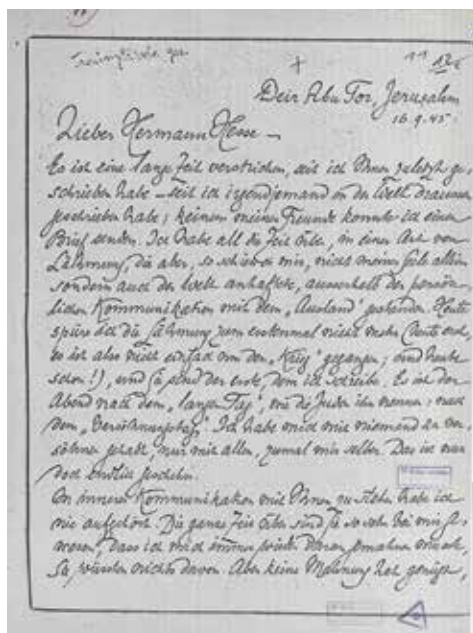 Deir Abu Tor, Jerusalem
16.9.45
Lieber Hermann Hesse –
Es ist eine lange Zeit verstrichen, seit ich Ihnen zuletzt ge-
schrieben habe – seit ich irgendjemand in der Welt draussen
geschrieben habe; keinem meiner Freunde konnte ich einen
Brief senden. Ich habe all die Zeit über, in einer Art von
Lähmung, die aber, so schien es mir, nicht meiner Seele allein
sondern auch der Welt anhaftete, ausserhalb der persön-
lichen Kommunikation mit dem „Ausland" gestanden. Heute
spüre ich die Lähmung zum erstenmal nicht mehr (heute erst,
es ist also nicht einfach um den „Krieg" gegangen; und heute
schon!), und Sie sind der erste, dem ich schreibe. Es ist der
Abend nach dem „langen Tag", wie die Juden ihn nennen: nach
dem „Versöhnungstag". Ich habe mich mit niemand zu ver-
söhnen gehabt, nur mit allen, zumal mir selber. Das ist nun
doch endlich geschehen.
In innerer Kommunikation mit Ihnen zu stehen habe ich
nie aufgehört. Die ganze Zeit über sind Sie so sehr bei mir ge-
wesen, dass ich mich immer wieder daran gemahnen musste,
Sie wüssten nichts davon. Aber keine Mahnung hat genügt,